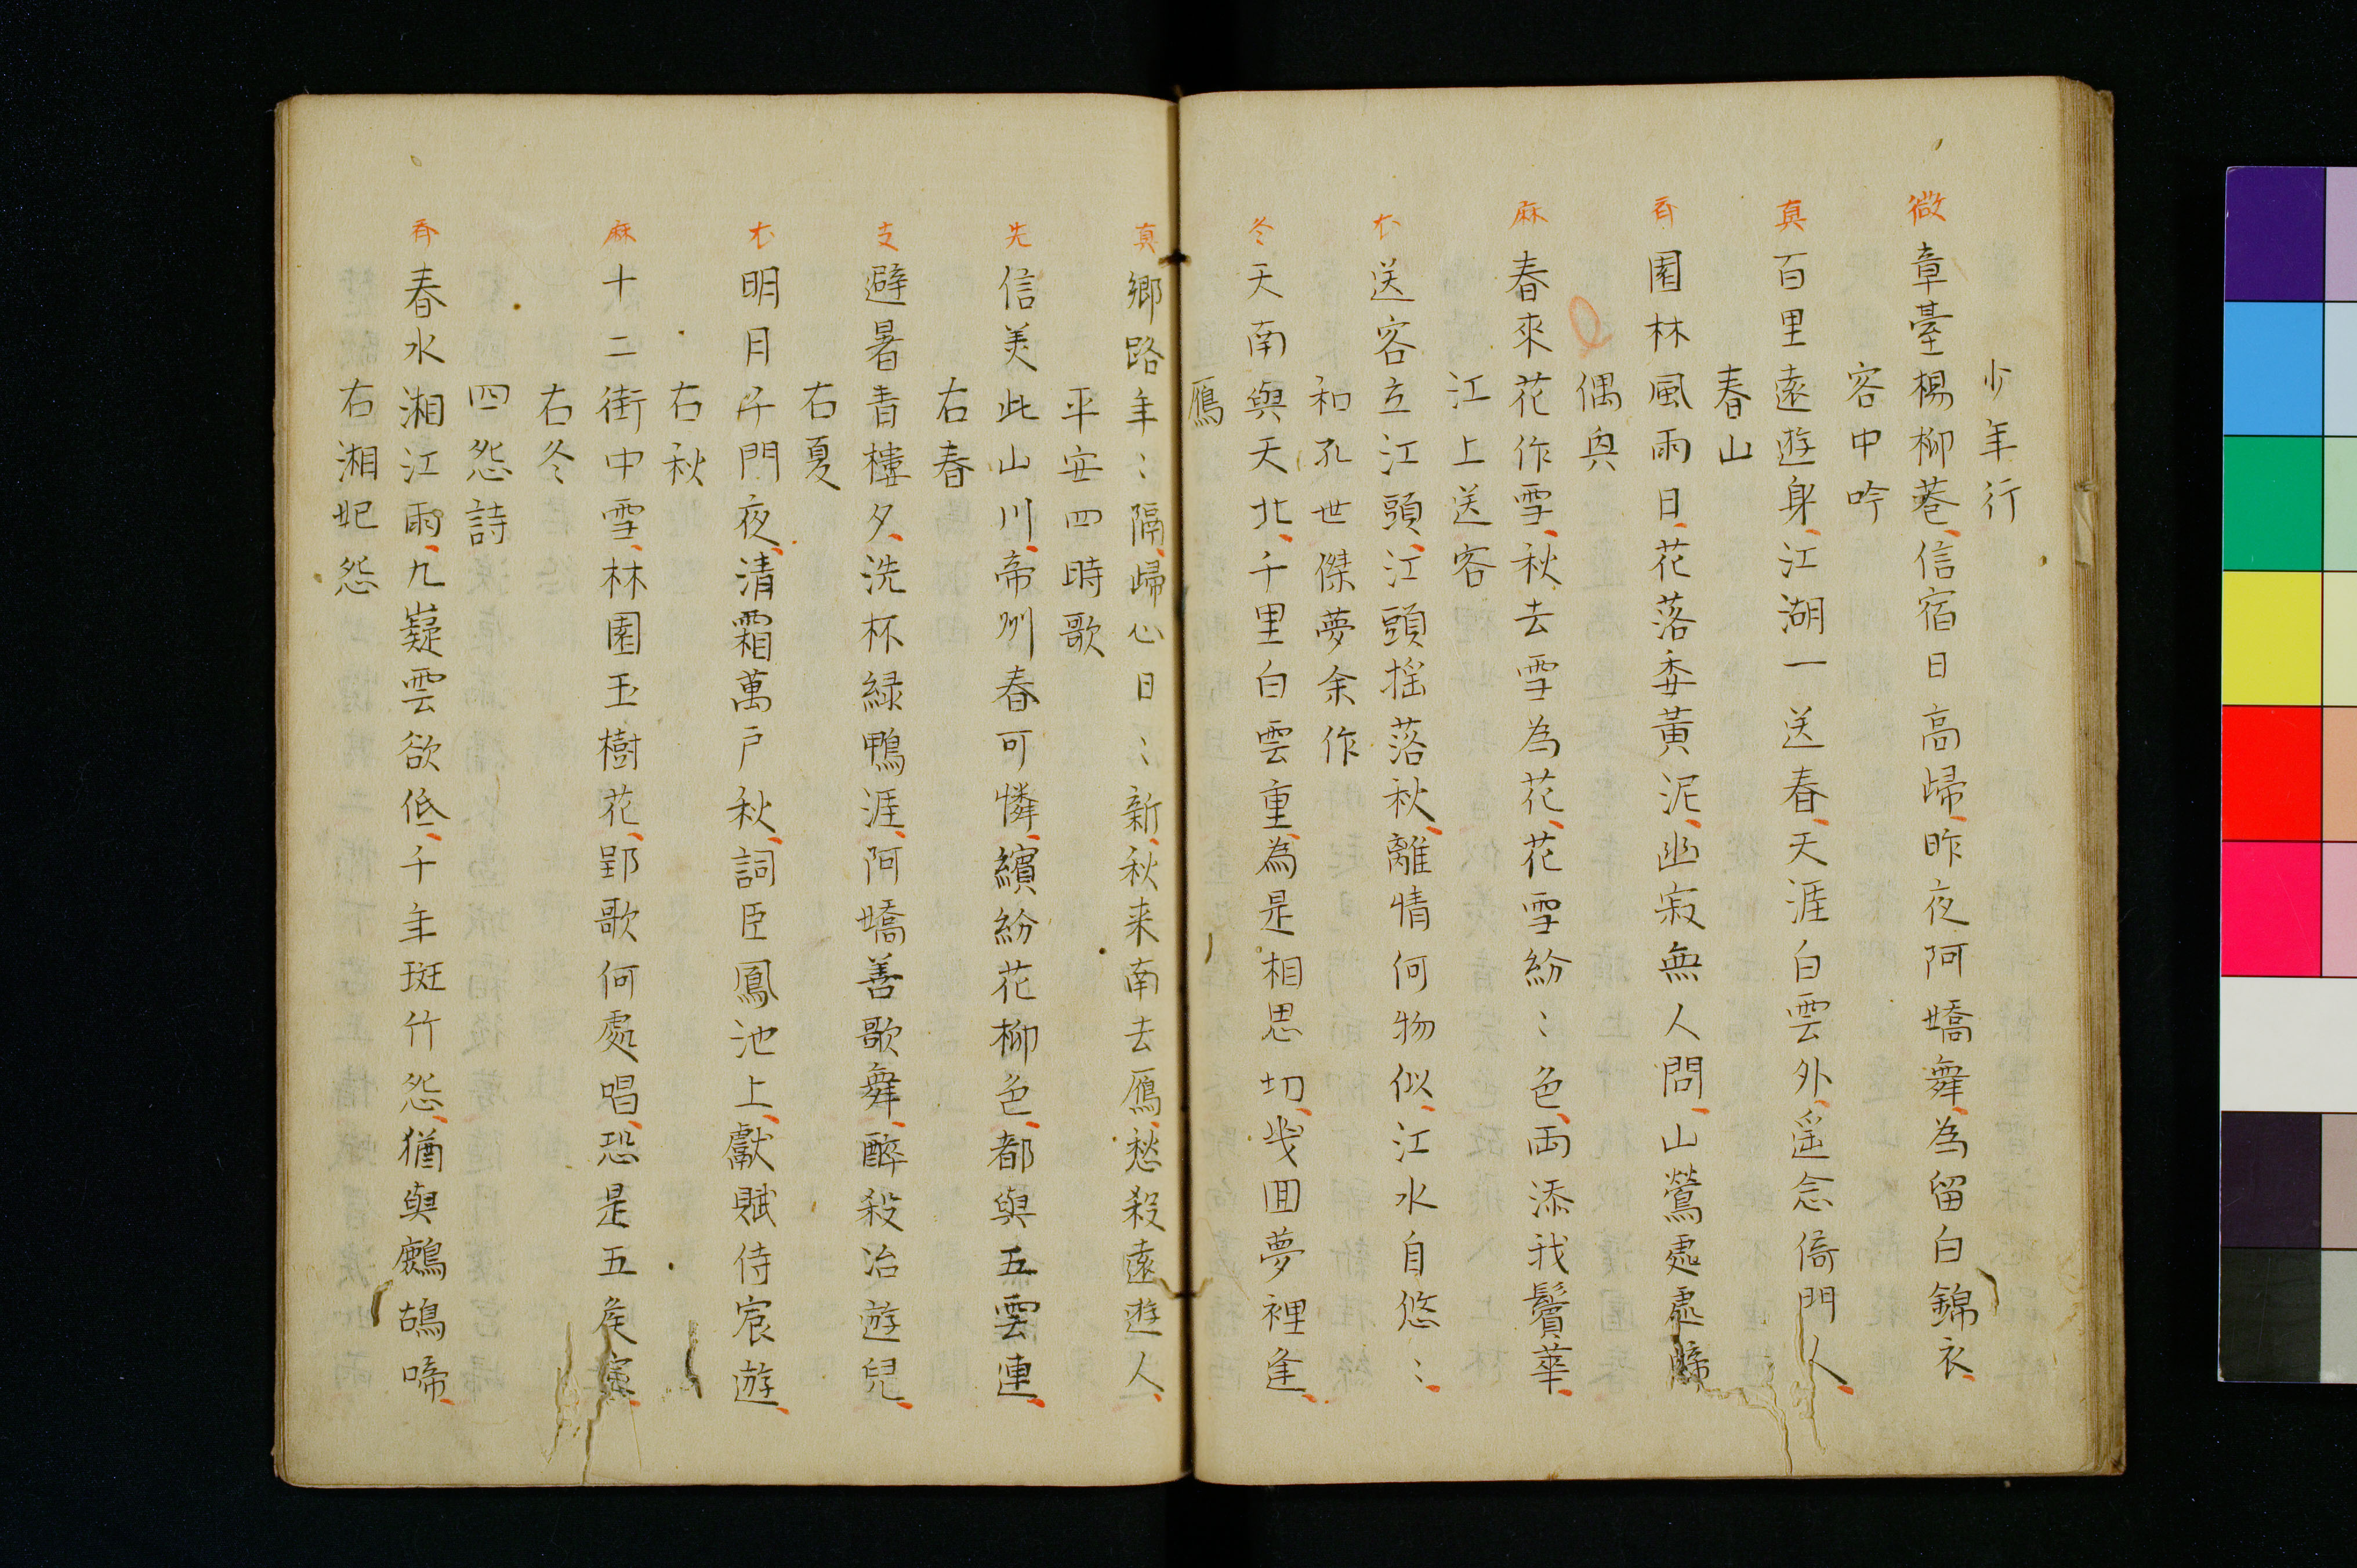 少年行
微 章臺楊柳巷信宿日高歸昨夜阿嬌舞為留白錦衣
客中吟
真 百里遠遊身江湖一送春天涯白雲外遥念倚門人
春山
斉 園林風雨日花落委黃泥幽寂無人問山鶯處處啼
偶興
麻 春來花作雪秋去雪為花花雪紛〻色両添我鬢華
江上送客
尤 送客立江頭江頭揺落秋離情何物似江水自悠〻
和孔世傑夢余作
冬 天南與天北千里白雲重為是相思切幾囬夢裡逢
鴈
真 鄉路年〻隔歸心日〻新秋来南去鴈愁殺遠遊人
平安四時歌
先 信美此山川帝州春可憐繽紛花柳色都與五雲連
右春
支 避暑青樓夕洗杯緑鴨涯阿嬌善歌舞醉殺冶遊兒
右夏
尤 明月千門夜清霜萬戸秋詞臣鳳池上獻賦侍宸遊
右秋
麻 十二街中雪林園玉樹花郢歌何處唱恐是五矦家
右冬
四怨詩
斉 春水湘江雨九嶷雲欲低千年斑竹怨猶與鷓鴣啼
右湘妃怨